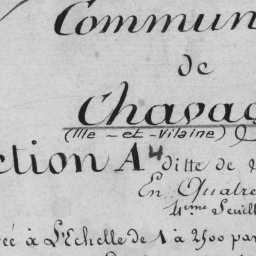 Commun
de
Chavag
(Ille-et-Vilaine)
ction A4 ditte de
En Quatre
4.eme Feuill
ée à L'Echelle de 1 à 2500 par